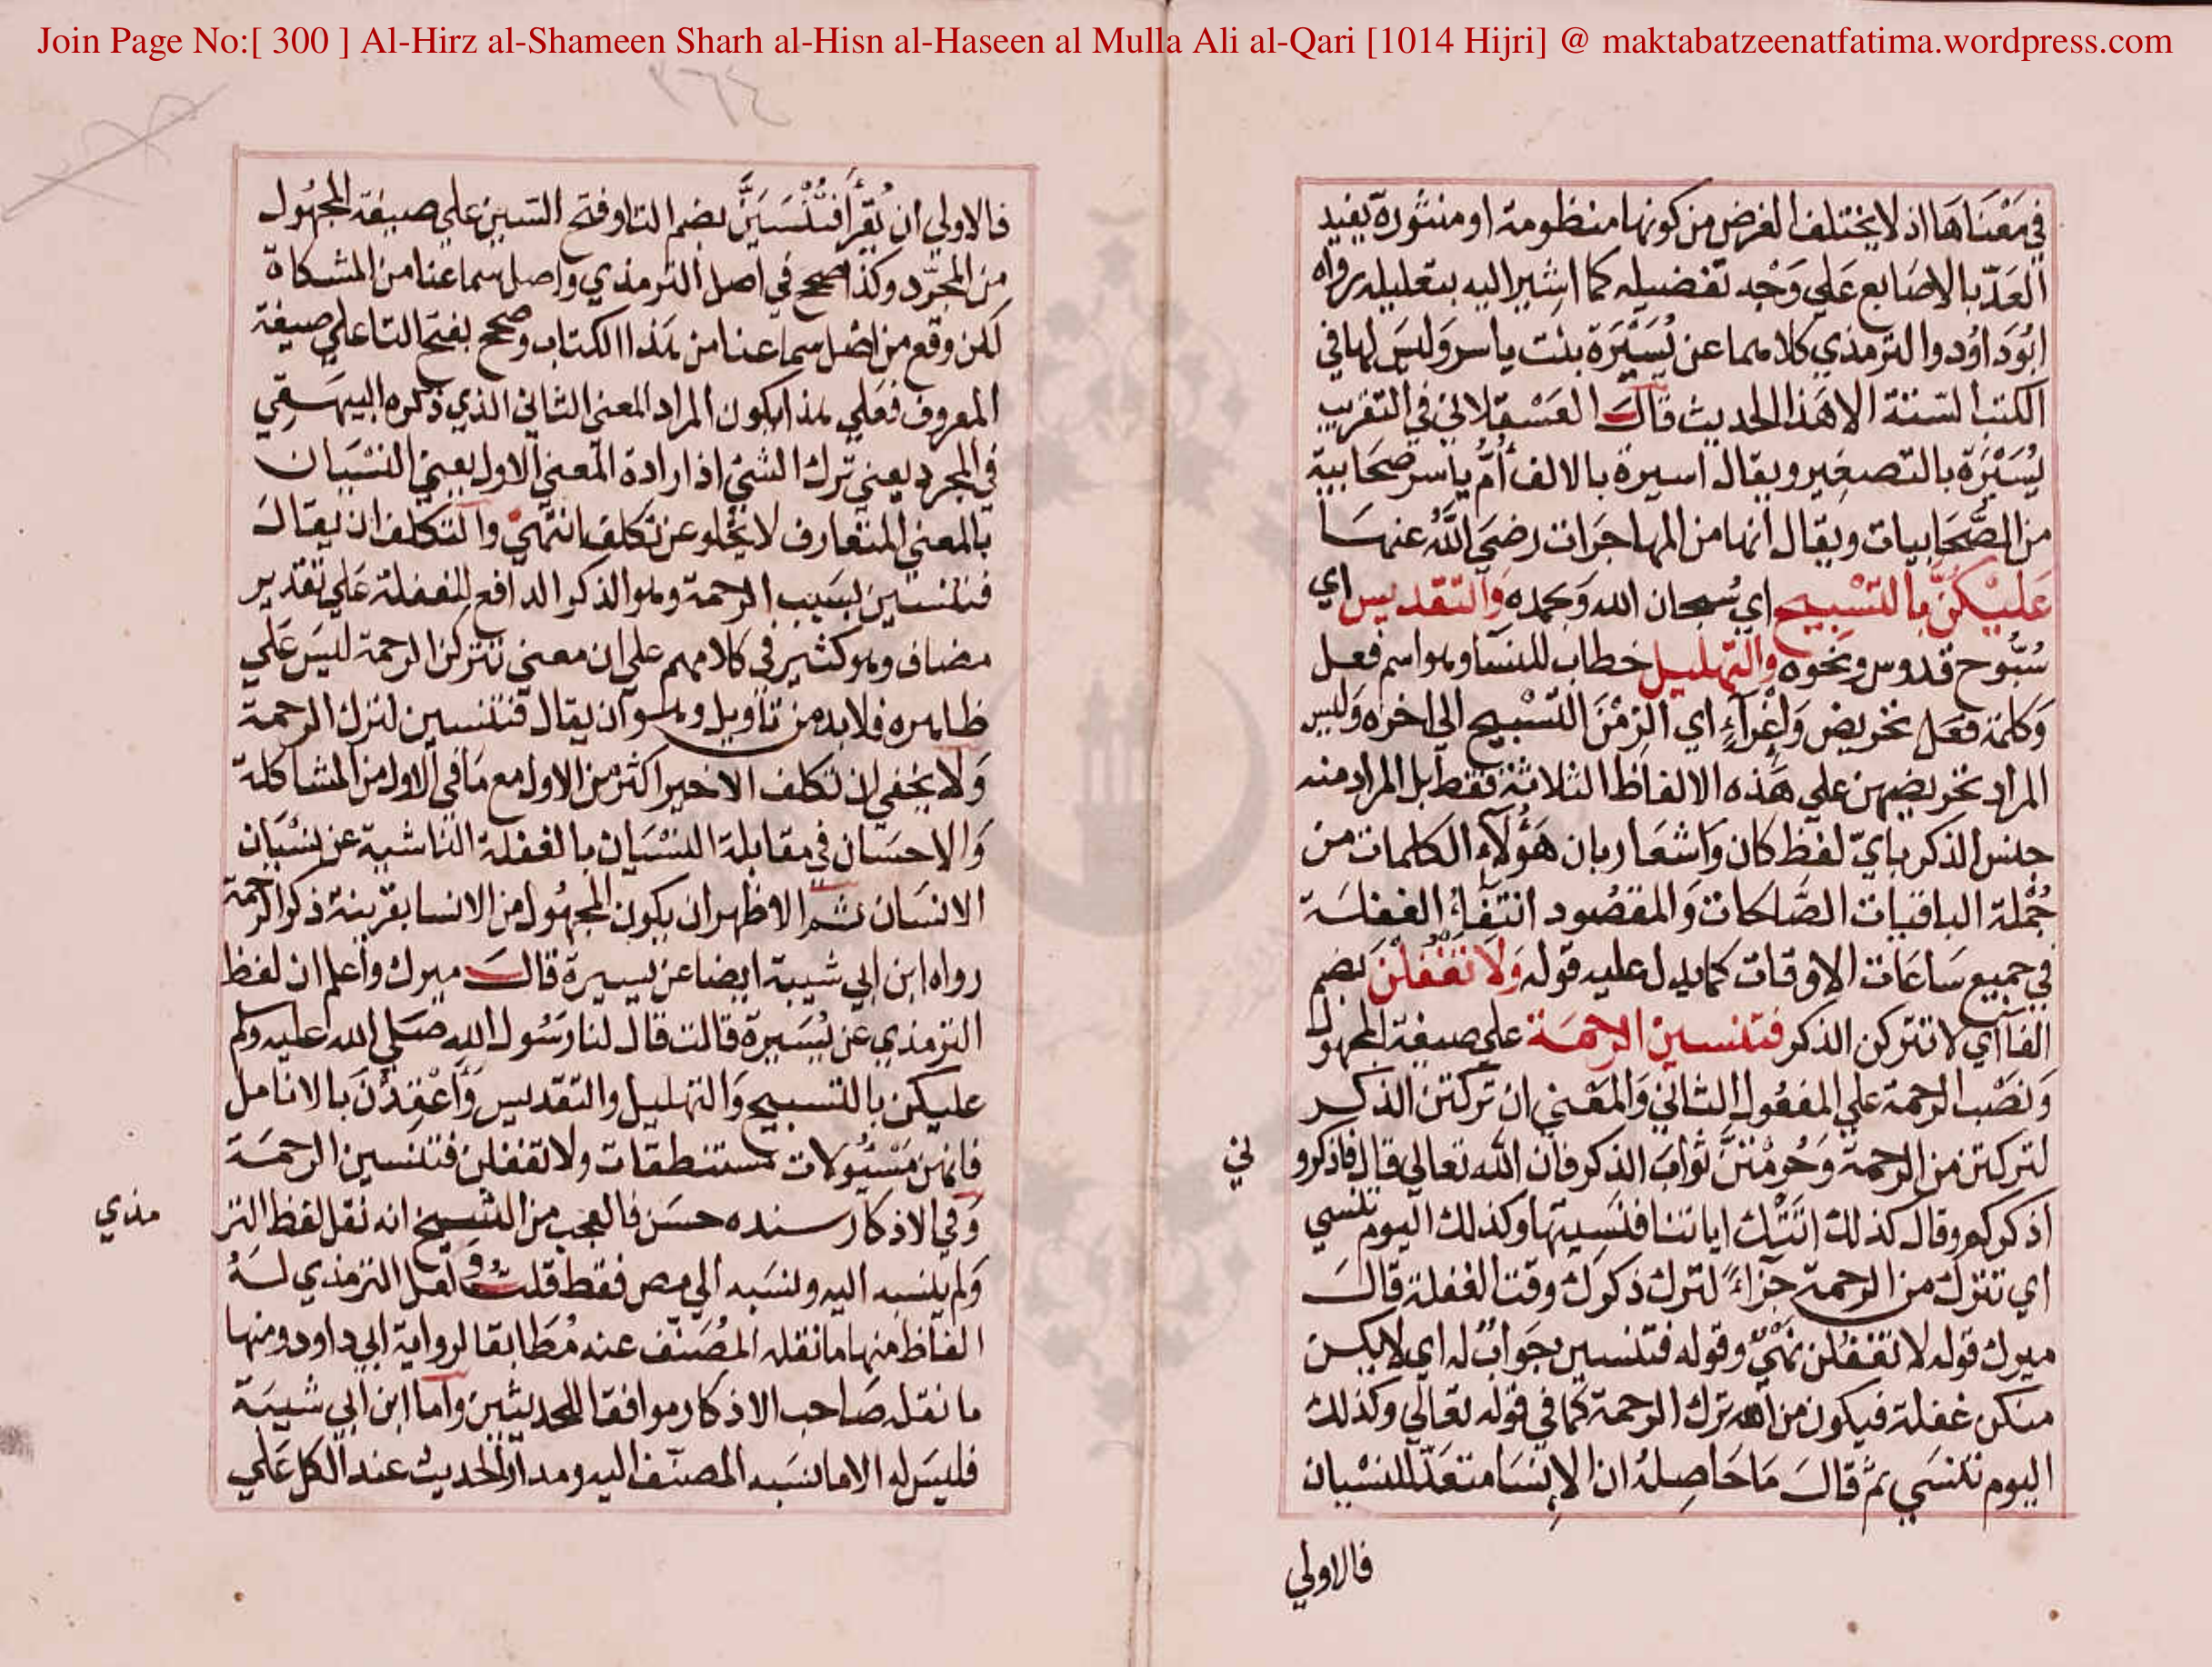 Join Page No:[ 300 ] Al-Hirz al-Shameen Sharh al-Hisn al-Haseen al Mulla Ali al-Qari [1014 Hijri] @ maktabatzeenatfatima.wordpress.com
في مَعْنَاهَا اذ لا يختلف الغرض من كونها منظومة او منثورة يفيد
العَدّ بالاصَابع عَلي وَجْه تفضيله كما اشير اليه بتعليله رواه
ابُودَاوُد والترمذي كلاهما عن يُسَيْرَة بنت ياسر وَليسَ لها في
الكتب الستة الا هَذا الحديث قال العَسْقلاني في التقريب
يُسَيْرَة بالتصغير ويقال اسيرة بالالف أُمّ ياسر صحَابية
من الصَّحَابيات ويقال انها من المهاجرات رضيَ اللَّه عنهَا
عَليْكُنَّ بِالتَسْبيح اي سُبحان الله وَبحمده وَالتقديس اي
سُبُّوح قدوس ونحوه والتهليل خطاب للنسا وهو اسم فعل
وَكلمة فعَل تحريض وَاِغْرآءٍ اي الزِمْنَ التَسْبيح الي اخره وَليس
المراد تحريضهن علي هَذه الالفاظ الثلاثة فقط بل المراد منه
جنس الذكر بايّ لفظ كان وَاشعَار بان هَؤلآءِ الكلمات من
جُمْلة الباقيات الصَّالحات وَالمقصُود انتفاءُ الغفلَة
في جميع سَاعَات الاوقات كما يدل عليه قوله وَلَا تَغْفُلْنَ بضم
الفا اي لا تتركن الذكر فتنسين الرحمَة علي صيغة المجهول
وَنصْب الرحمة علي المفعُول الثاني وَالمعْني ان تركتن الذكر
لتركتن من الرحمة وَحُرمْتنَّ ثوَابَ الذكر فان الله تعالي قال فاذكرو
ني
اذكركم وقال كذلك اتَتْك اياتنا فنَسِيتها وكذلك اليوم تنسي
اي تترك من الرحمة جزاءً لترك ذكرك وقت الغفلة قالَ
ميرك قوله لا تغفُلن نهْيٌ وقوله فتنسين جوَابٌ له اي لا يكن
منكن غفلة فيكون من الله ترك الرحمة كما في قوله تعالي وكذلك
اليوم تنسَي ثم قالَ مَا حَاصِلهُ ان الإنسَا متعَدّ للنسْيان
فالاولي
فالاولي ان يُقرأ فتُنْسَيَنَّ بضم التا وفتح السين علي صيغة المجهُول
من المجرّد وكذا صحح في اصل الترمذي واصل سماعنا من المشكاة
لكن وقع من اصْل سماعنا من هذا الكتاب وصحح بفتح التا علي صيغة
المعروف فعَلي هذا يكون المراد المعني الثاني الذي ذكره البيهقي
في المجرد يعني ترك الشئ اذ ارادة المعني الاول يعني النسْيَان
بالمعني المتعارف لا يخلو عن تكلف انتهيَ والتكلف ان يقالَ
فتنسين بسَبب الرحمة وهو الذكر الدافع للغفلة عَلي تقدير
مضاف وهو كثير في كلامهم علي ان معني تتركن الرحمة ليسَ عَلي
ظاهره فلا بد من تاويل وهو ان يقال فتنسين لترك الرحمة
وَلا يخفي ان تكلف الاخير اكثر من الاول مع مَا في الاول من المشاكلة
وَالاحسَان في مقابلة النسْيَان بالغفلة الناشية عن نسْيَان
الانسَان ثم الاظهر ان يكون المجهُول من الانسا بقرينة ذكر الرحمة
رواه ابن ابي شيبة ايضا عن يسيرة قال ميرك واعلم ان لفظ
الترمذي عن يُسَيرة قالت قال لنا رَسُول الله صَلي الله عليه وسلم
عليكن بالتسبيح وَالتهليل والتقديس وَاعْقِدْنَ بالانامل
فانهن مَسْئُولات مستنطقات ولا تغفلن فتنسين الرحمَة
وَفي الاذكار سنده حسَن فالعجب من الشيخ انه نقل لفظ التر
مذي
وَلم ينسبه اليه ونسَبه الي مص فقط قلت لعل الترمذي لهُ
الفاظ منها ما نقله المصَنّف عنه مُطابقا لرواية ابي داود ومنها
ما نقله صَاحب الاذكار موافقا للحديثين وَاما ابن ابي شيبَة
فليسَ له الا ما نسَبه المصنف اليه ومدار الحديث عند الكل عَلي